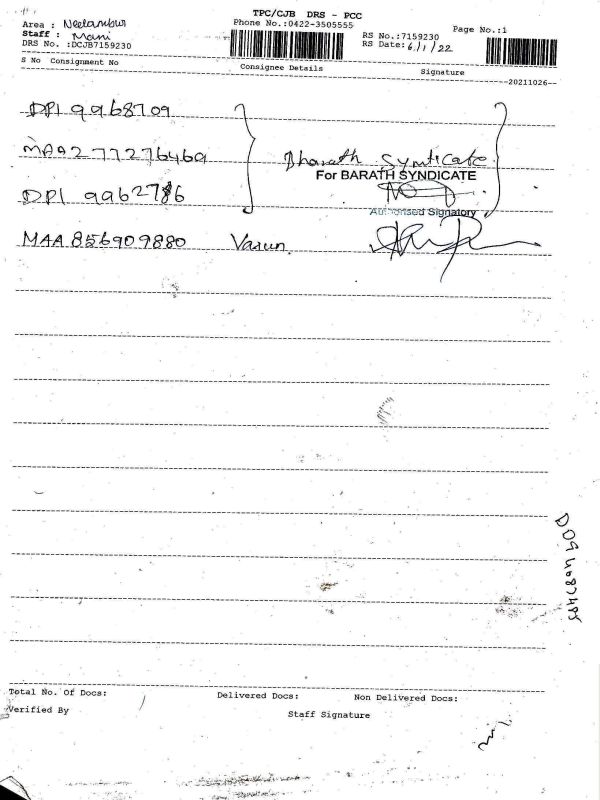 TPC/CJB DRS - PCC
Area : Neelambur
Phone No.:0422-3505555
RS No.:7159230
Page No.:1
Staff : Mani
RS Date: 6/1/22
DRS No. :DCJB7159230
S No Consignment No
Consignee Details
Signature
--20211026--
DPI 9968709
MAA277276469
Bharath Symticate
For BARATH SYNDICATE
DPI 9962786
Authorised Signatory
MAA 856909880 Varun
Total No. Of Docs:
Delivered Docs:
Non Delivered Docs:
Verified By
Staff Signature